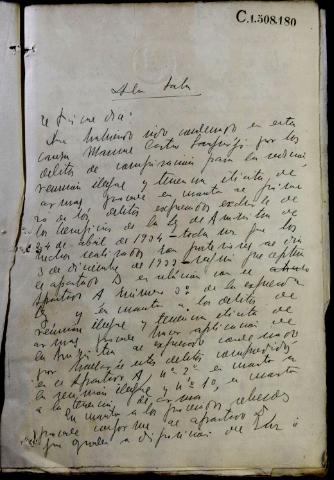 C.1.508.180
A la Sala
El fiscal dice:
Que habiendo sido condenado en esta
causa Manuel Cortés por los
delitos de conspiración para la rebelión,
reunión ilegal y tenencia ilícita de
armas, procede en cuanto al prime
ro de los delitos expresados excluirle de
los beneficios de la ley de Amnistía de
24 de abril de 1934 toda vez que los
hechos realizados son posteriores al día
3 de diciembre de 1933
el apartado B en relación con el
Apartado A, número 3º de la expresada
ley y en cuanto a los delitos de
reunión ilegal y tenencia ilícita de
armas procede hacer aplicación de
la amnistía al expresado condenado
por hallarse estos delitos comprendidos
en el Apartado A, nº 2º en cuanto a
la reunión ilegal y nº 10, en cuanto
a la tenencia de armas
En cuanto a los procesados rebeldes
procede conforme al apartado
que queden a disposición de